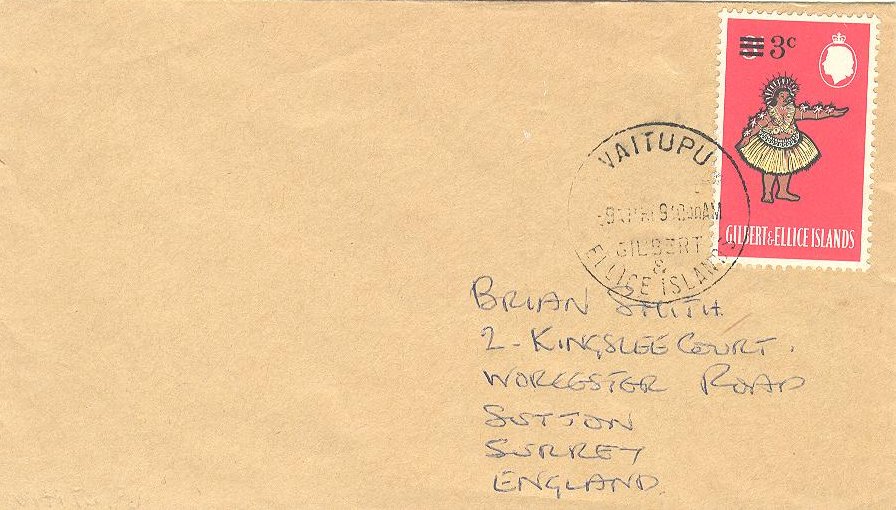 3c
GILBERT & ELLICE ISLANDS
VAITUPU
GILBERT
&
ELLICE ISLANDS
BRIAN SMITH
2 - KINGSLEE COURT.
WORCESTER ROAD
SUTTON
SURREY
ENGLAND